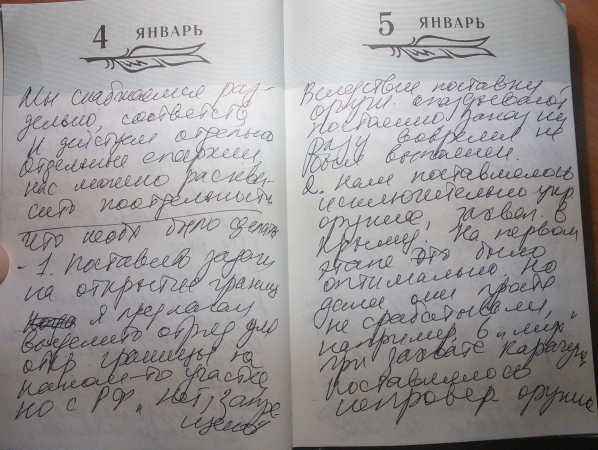 4 ЯНВАРЬ
Мы снабжаемся раз-
дельно, соответств
и действуем отдельно
отдельные епархии,
нас можно раскве-
сить поотдельности
Что необх было сделать
- 1. поставлена задачи
на открытие границ
я предлагал
выделить отряд для
откр границы на
каком-то участке
но с РФ „нет, запре
щено"
5 ЯНВАРЬ
Вследствие поставки
оруж. опаздывают
постоянно, ни
разу вовремя не
были выполнен.
2. Нам поставлялось
исключительно укр
оружие, захвач. в
Крыму. На первом
этапе это было
оптимально, но
далее они просто
не срабатывали,
например, 6 „мух"
при захвате Карачуна
Поставлялось
непровер оружие